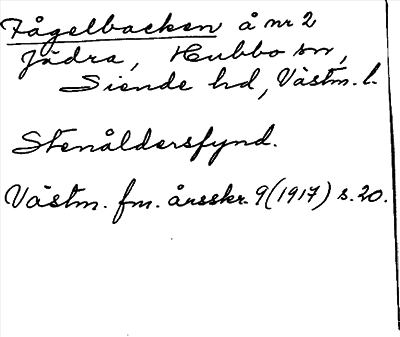 Fågelbacken å nr 2
Jädra, Hubbo sn,
Siende hd, Västm. l.
Stenåldersfynd.
Västm. fm. årsskr. 9 (1917) s. 20.